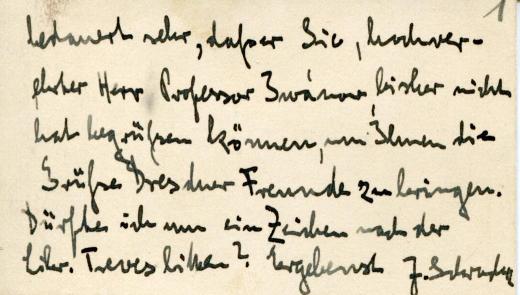 1
bedauert sehr, daß er Sie, hochver-
ehrter Herr Professor Iwánow, bisher nicht
hat begrüßen können, um Ihnen die
Grüße Dresdner Freunde zu bringen.
Dürfte ich um ein Zeichen nach der
Libr. Treves bitten? Ergebenst J.